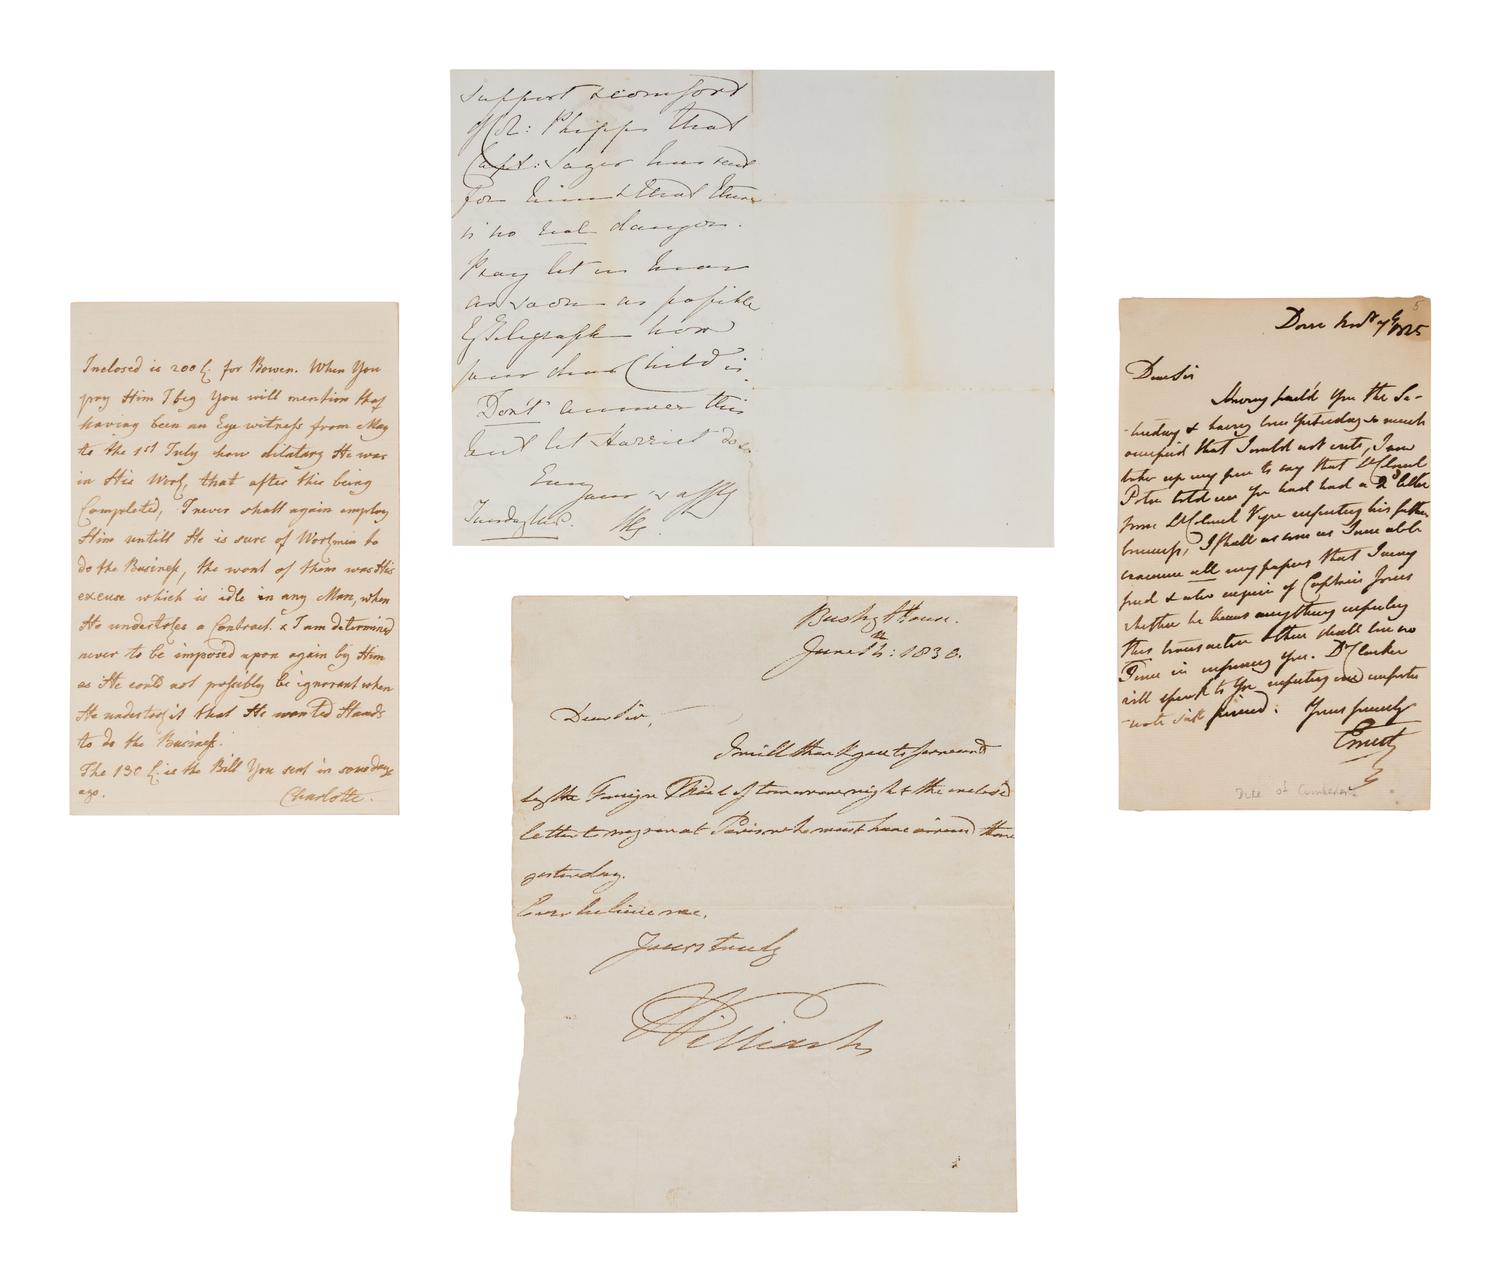 Inclosed is 200 £. for Bowen. When You
pay Him I beg You will mention that
having been an Eye witness from May
to the 1st July how dilatory He was
in His Work, that after this being
Completed, I never shall again employ
Him untill He is sure of Workmen to
do the Business, the want of them was His
excuse which is idle in any Man, when
He undertakes a Contract. & I am determined
never to be imposed upon again by Him
as He could not possibly be ignorant when
He undertook it that He wanted Hands
to do the Business.
The 130 £. is the Bill You sent in some days
ago. Charlotte.
support & comfort
of Col: Phipps that
Capt: hus sent
for him & that there
is no real danger.
Pray let us hear
as soon as possible
by Telegraph how
your dear Child is.
Don't answer this
but let Harriet do so.
Ever
yours affly
Tuesday
Bushy House.
June 1830.
Dear Sir,
I will thank you to forward
by the Foreign Mail of tomorrow night the inclos'd
letter to my son at Paris who must have arrived there
yesterday.
Ever believe me,
Yours truly
William
5
1825
Dear Sir
Having you the Sa-
-turday & having been Yesterday so much
occupied that I could not write, I now
take up my pen to say that Lt Colonel
told me You had had a 2d letter
from Lt Colonel respecting his father
business, I shall as soon as I am able
examine all my papers that I may
find & also enquire of Captain Jones
whether he knows anything respecting
this transaction & then shall lose no
Time in informing You. Dr
will speak to You respecting
Yours sincerely
Ernest
Duke of Cumberland